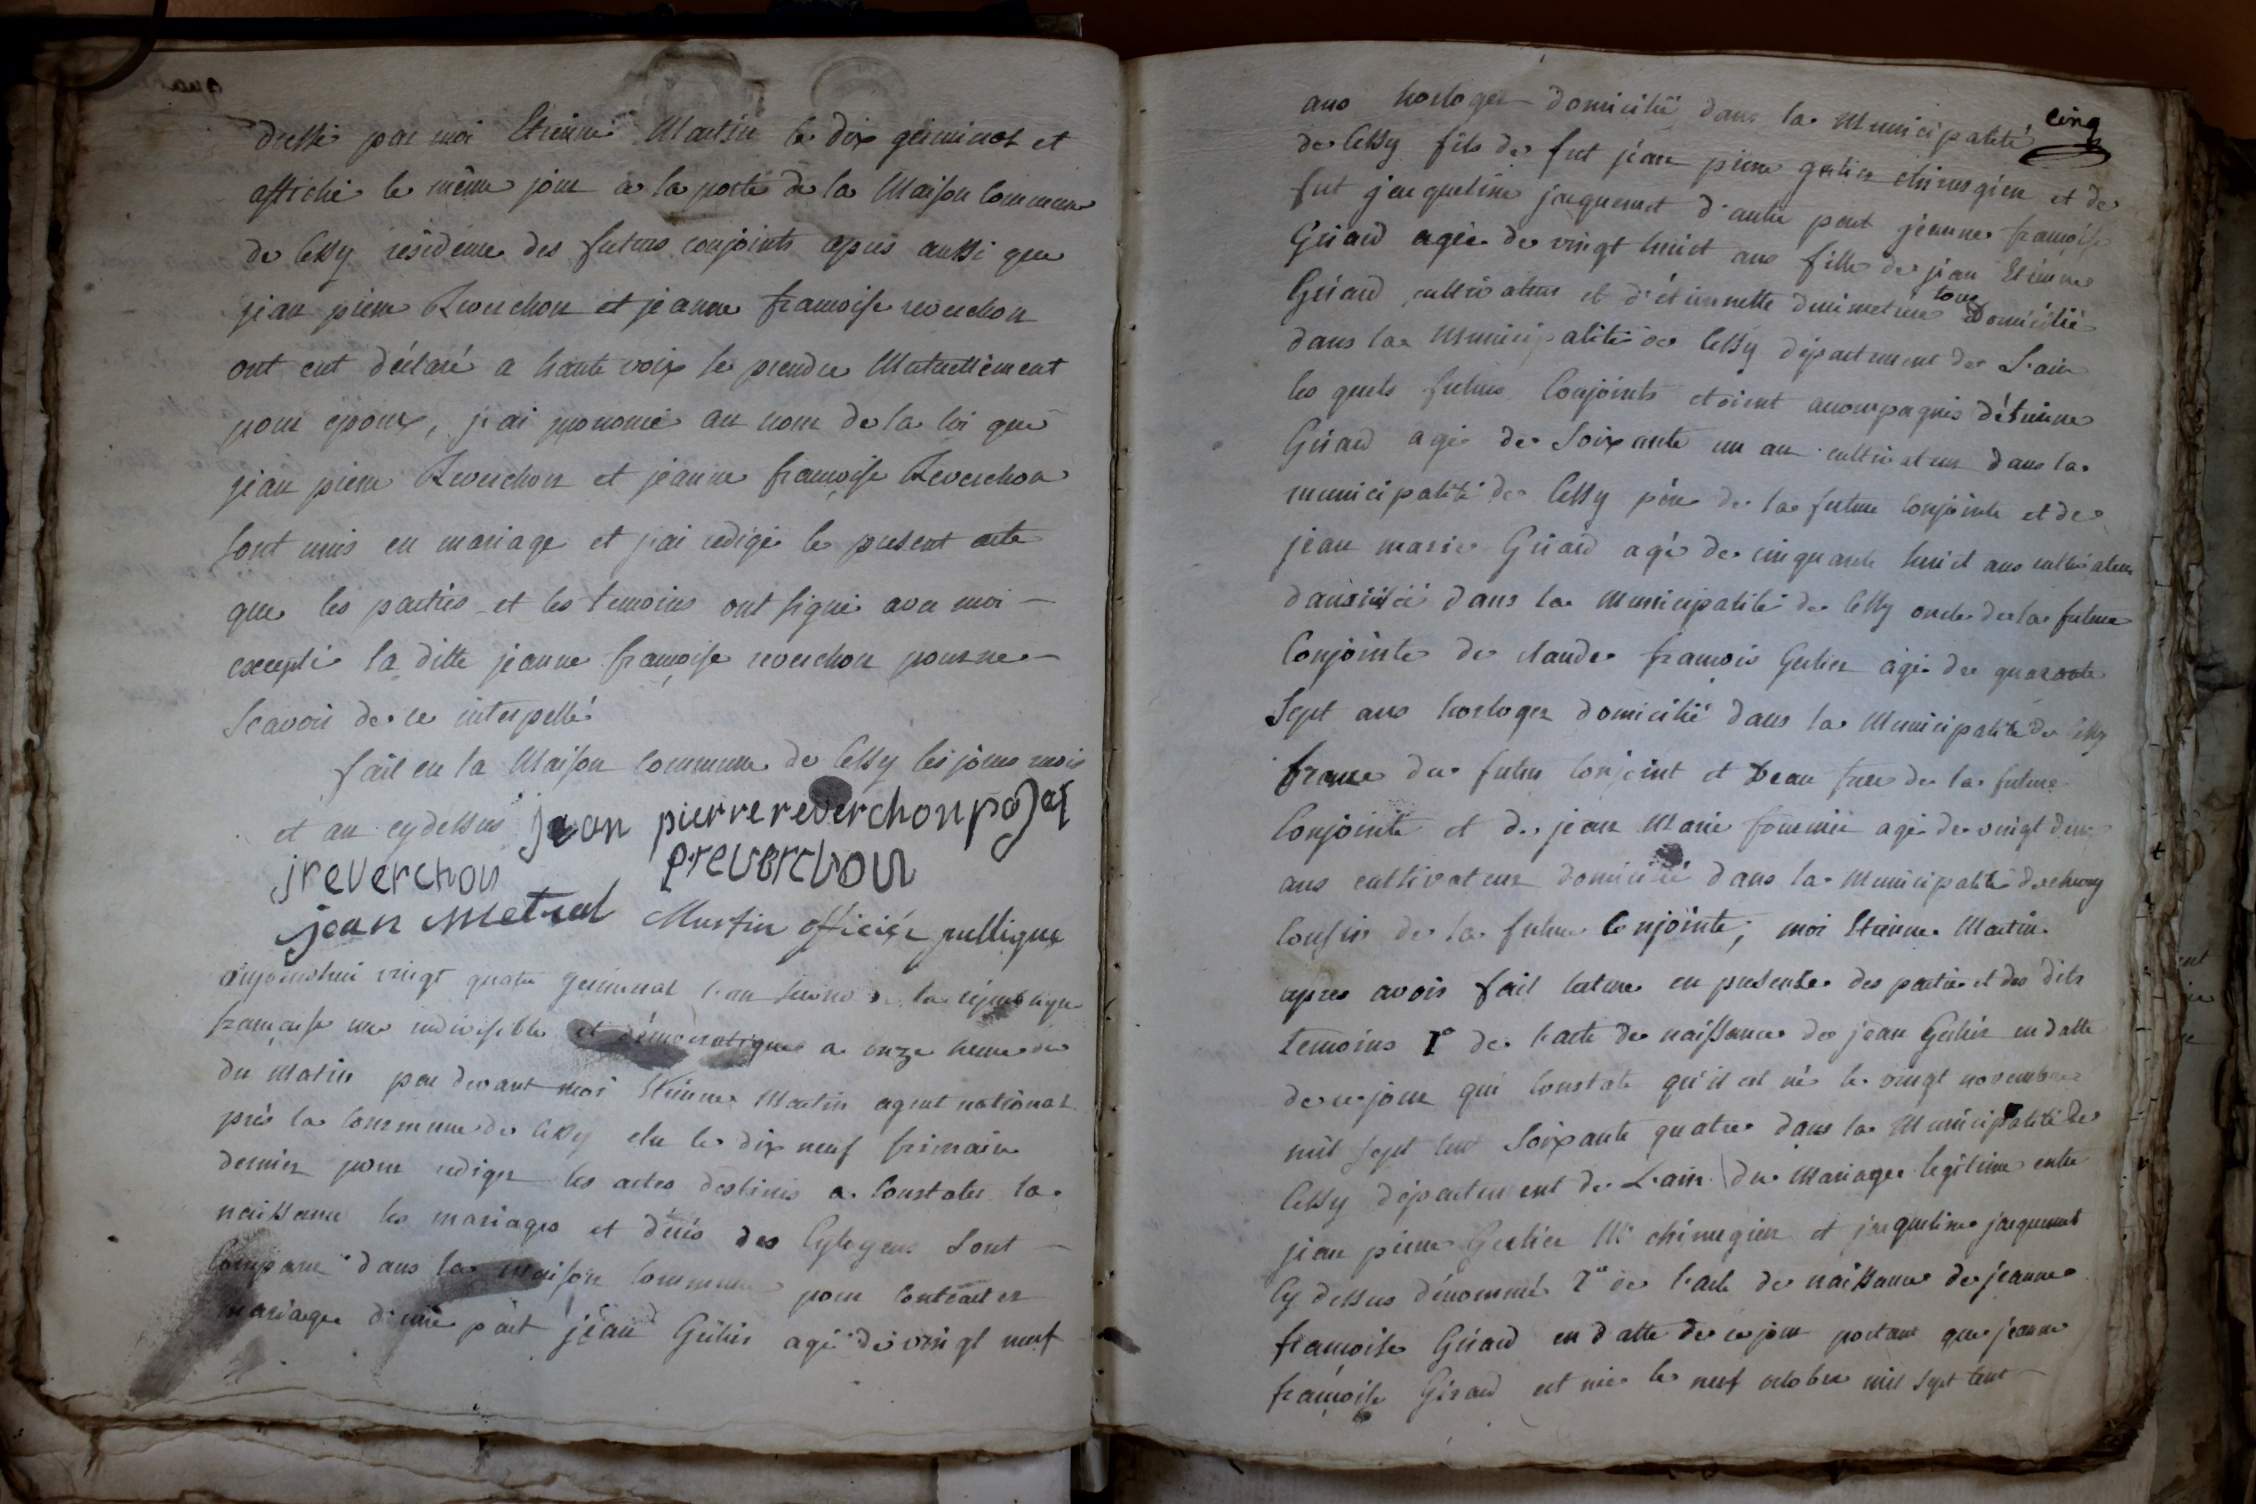 dressé par moi Etienne Martin le dix germinal et
affiché le même jour a la porte de la Maison Commune
de Cessy résidence des futurs conjoints apres aussi que
jean pierre Reverchon et jeanne francoise reverchon
ont eut déclaré a haute voix se prendre Mutuellement
pour epoux, j'ai prononcé au nom de la loi que
jean pierre Reverchon et jeanne francoise Reverchon
sont unis en mariage et j'ai redigé le present acte
que les parties et les temoins ont signé avec moi —
excepté la ditte jeanne francoise reverchon pour ne —
Scavoir de ce interpellé
fait en la Maison Commune de Cessy les jours mois
et an cy dessus jean pierre reverchon
jreverchon preverchon
jean Metral Martin officier publique
aujourdhui vingt quatre germinal l'an second de la république
francaise une indivisible et démocratique a onze heures
du matin par devant moi Etienne Martin agent national
près la Commune de Cessy elu le dix neuf frimaire
dernier pour rediger les actes destinés a Constater la
naissance les mariages et décés des Cytoyens Sont —
Comparu dans la maison Commune pour Contracter
mariage d'une part jean Gerlier agé de vingt neuf
cinq
ans horloger domicilié dans la Municipalité
de Cessy fils de fut jean pierre gerlier chirurgien et de
fut jacqueline jaquemet d'autre part jeanne francoise
Girard agée de vingt huit ans fille de jean Etienne
Girard cultivateur et d'étiennette tous Domicilié
dans la Municipalité de Cessy département de L'ain
les quels futurs Conjoints etoient accompagnés d'étienne
Girard agé de Soixante un an cultivateur dans la
municipalité de Cessy père de la future Conjointe et de
jean marie Girard agé de cinquante huit ans cultivateur
dans la Municipalité de Cessy oncle de la future
Conjointe de claude francois Gerlier agé de quarante
Sept ans horloger domicilié dans la Municipalité de Cessy
frere du futur Conjoint et beau frere de la future
Conjointe et de jean Marie fournier agé de vingt deux
ans cultivateur domicilié dans la Municipalité
Cousin de la future Conjointe; moi Etienne Martin
apres avoir fait lecture en presence des parties et des dits
temoins 1° de l'acte de naissance de jean Gerlier en datte
de ce jour qui Constate qu'il est né le vingt novembre
mil sept cent Soixante quatre dans la Municipalité de
Cessy département de L'ain du Mariage legitime entre
jean pierre Gerlier Me chirurgien et jacqueline jaquemet
Cy dessus dénommé 2° de l'acte de naissance de jeanne
francoise Girard en datte de ce jour portant que jeanne
francoise Girard est née le neuf octobre mil sept cent